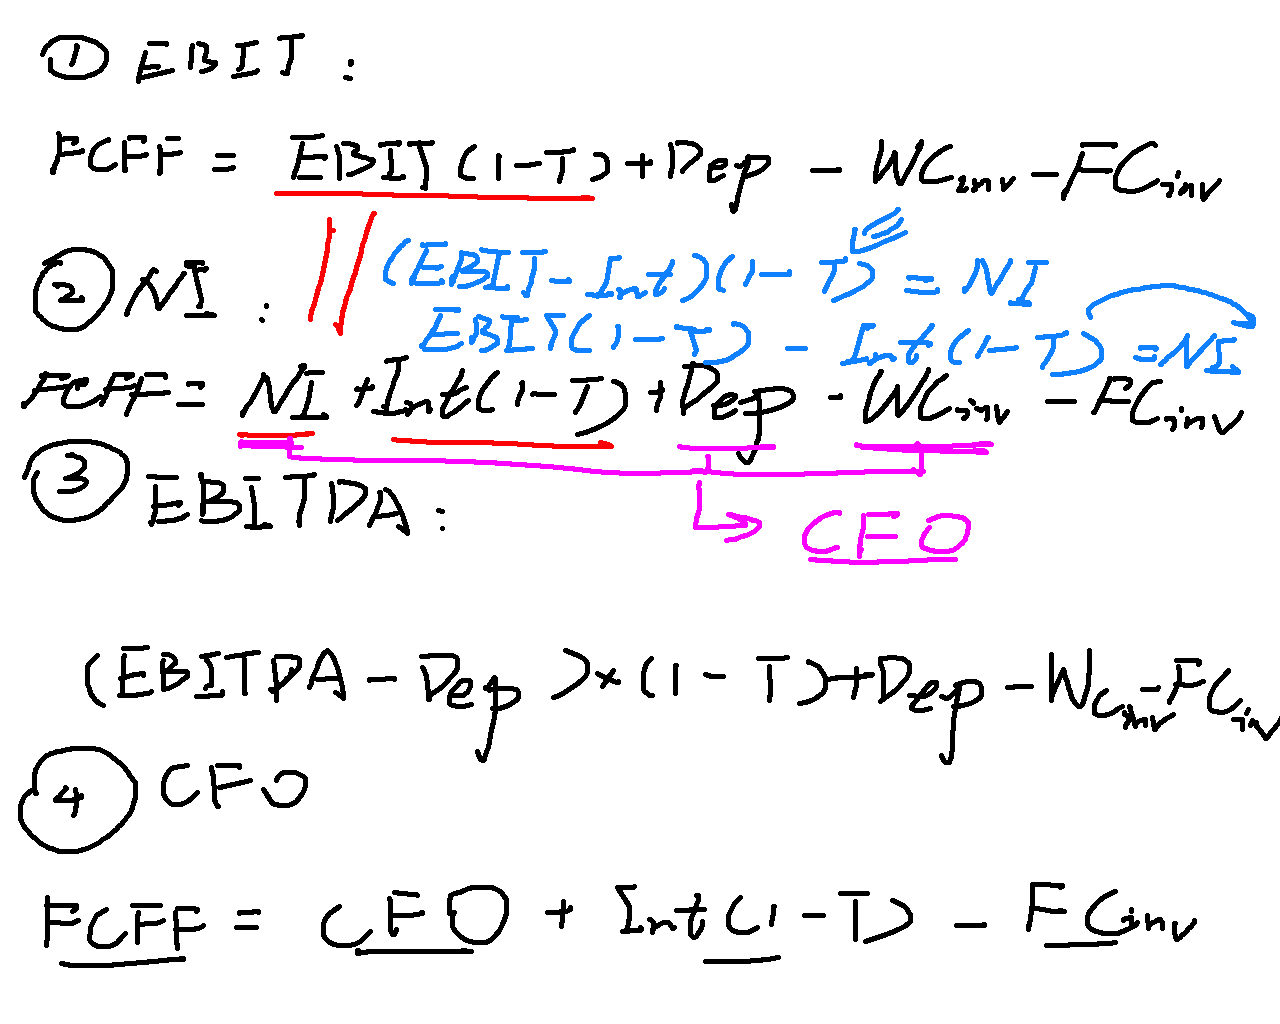 ① EBIT :
FCFF = EBIT(1-T)+Dep - WCinv - FCinv
② NI :
(EBIT-Int)(1-T) = NI
EBIT(1-T) - Int(1-T) = NI
FCFF = NI + Int(1-T) + Dep - WCinv - FCinv
③ EBITDA :
CFO
(EBITDA - Dep ) × (1-T) + Dep - WCinv - FCinv
④ CFO
FCFF = CFO + Int(1-T) - FCinv